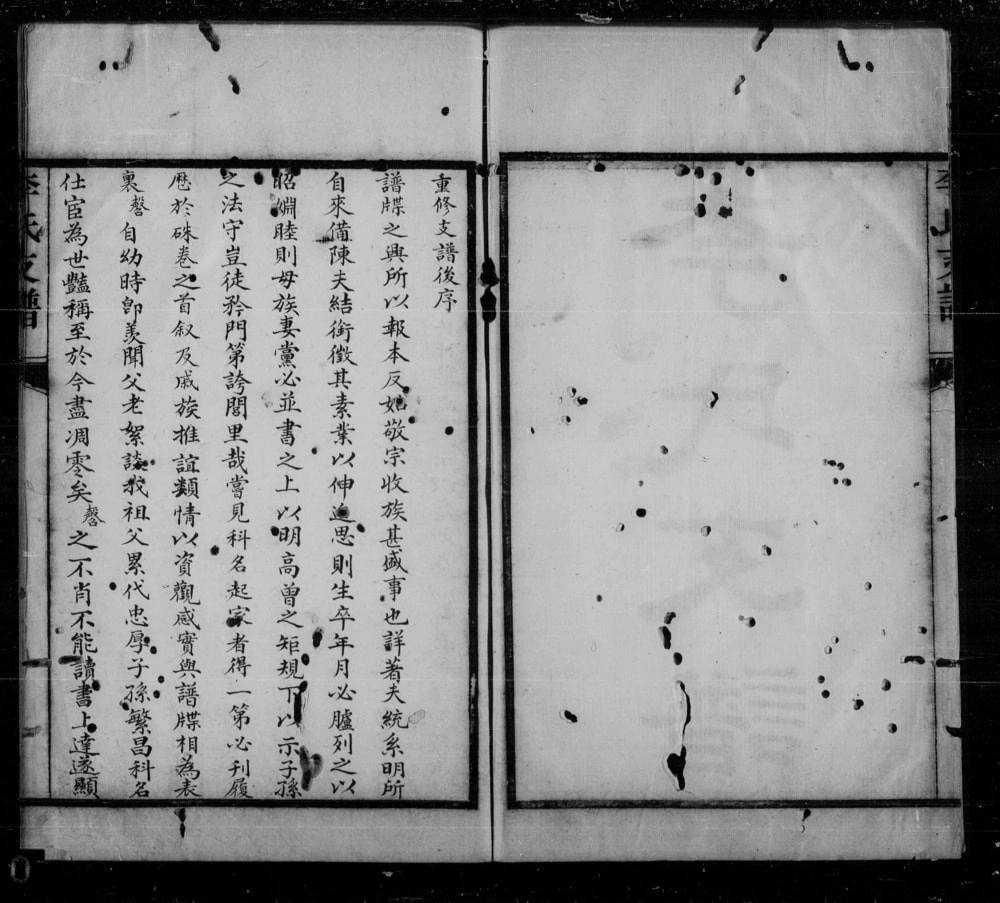 重修支譜後序
譜牒之興所以報本反始敬宗收族甚盛事也詳著夫統系明所
自來備陳夫結銜徵其素業以伸追思則生卒年月必臚列之以
昭婣睦則母族妻黨必並書之上以明高曾之矩規下以示子孫
之法守豈徒矜門第誇閭里哉嘗見科名起家者得一第必刊履
歷於硃卷之首叙及戚族推誼類情以資觀感實與譜牒相為表
裏謦自幼時卽羨聞父老絮談我祖父累代忠厚子孫繁昌科名
仕宦為世豔稱至於今盡凋零矣謦之不肖不能讀書上達遂顯
李氏支譜